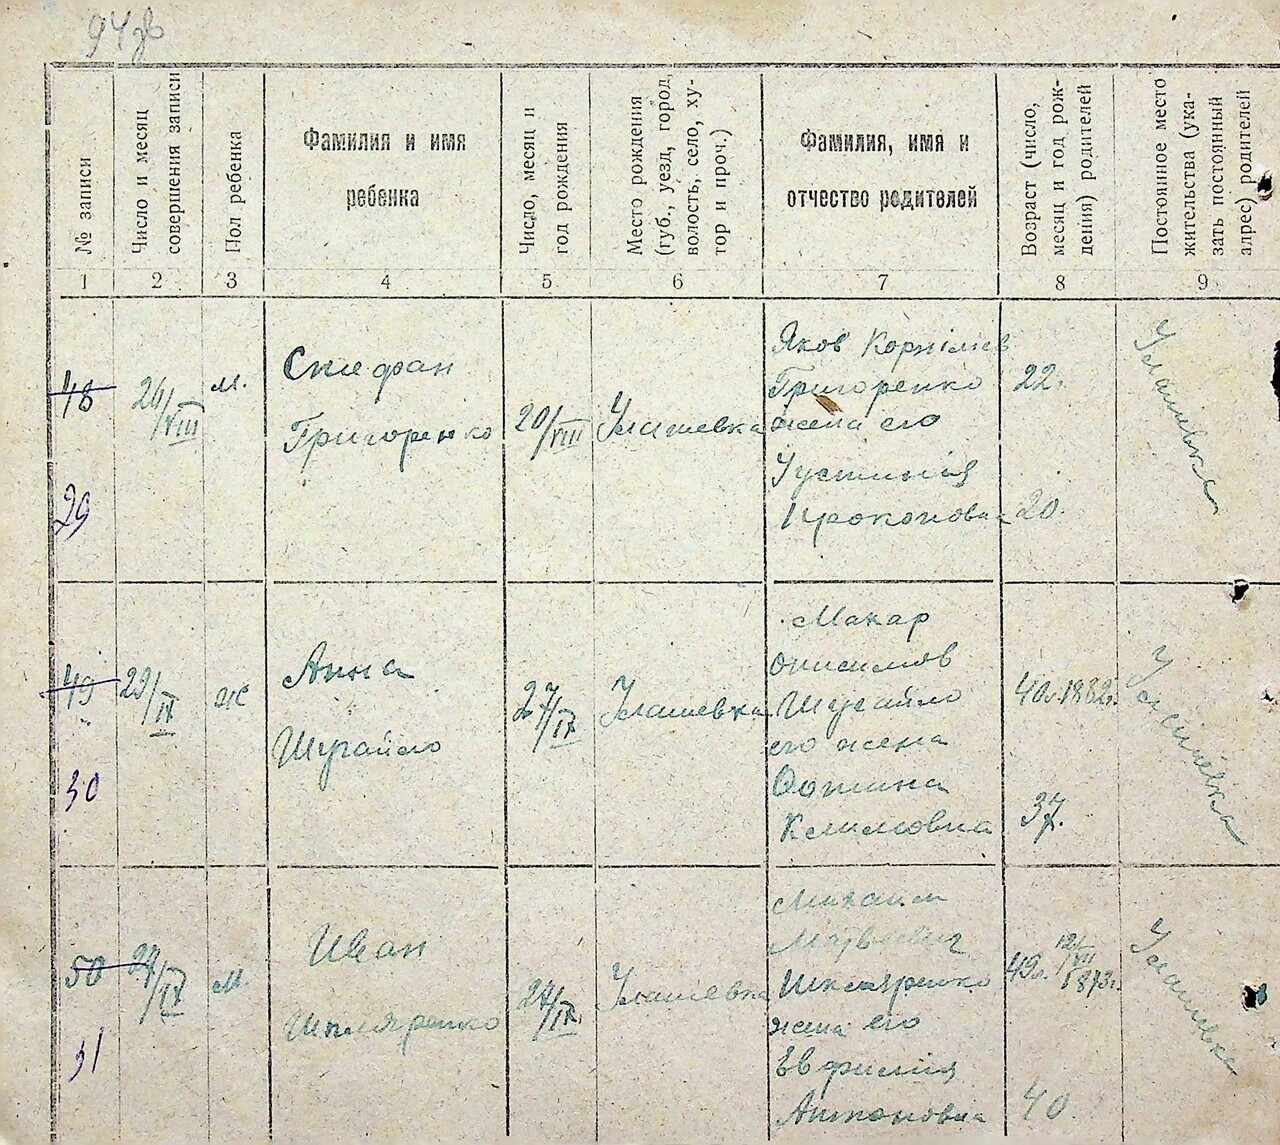 94 зв
№ записи
Число и месяц
совершения записи
Пол ребенка
Фамилия и имя
ребенка
Число, месяц и
год рождения
Место рождения
(губ., уезд, город,
волость, село, ху-
тор и проч.)
Фамилия, имя и
отчество родителей
Возраст (число,
месяц и год рож-
дения) родителей
Постоянное место
жительства (ука-
зать постоянный
адрес) родителей
1 2 3 4 5 6 7 8 9
48
29
26/VIII
м.
Стефан
Григоренко
20/VIII
Улашевка
Яков Корнілиев
Григоренко
жена его
Устинія
Прокоповна
22.
20.
Улашевка
49
30
29/IX
ж
Анна
Шугайло
27/IX
Улашевка
Макар
Онисимов
Шугайло
его жена
Климовна
40л. 1882г.
37.
Улашевка
50
31
29/IX
м.
Иван
Шкляренко
24/IX
Улашевка
Михаил
Матвіевич
Шкляренко
жена его
Евфимія
Антоновна
49л. 12/VII 1873г.
40
Улашевка